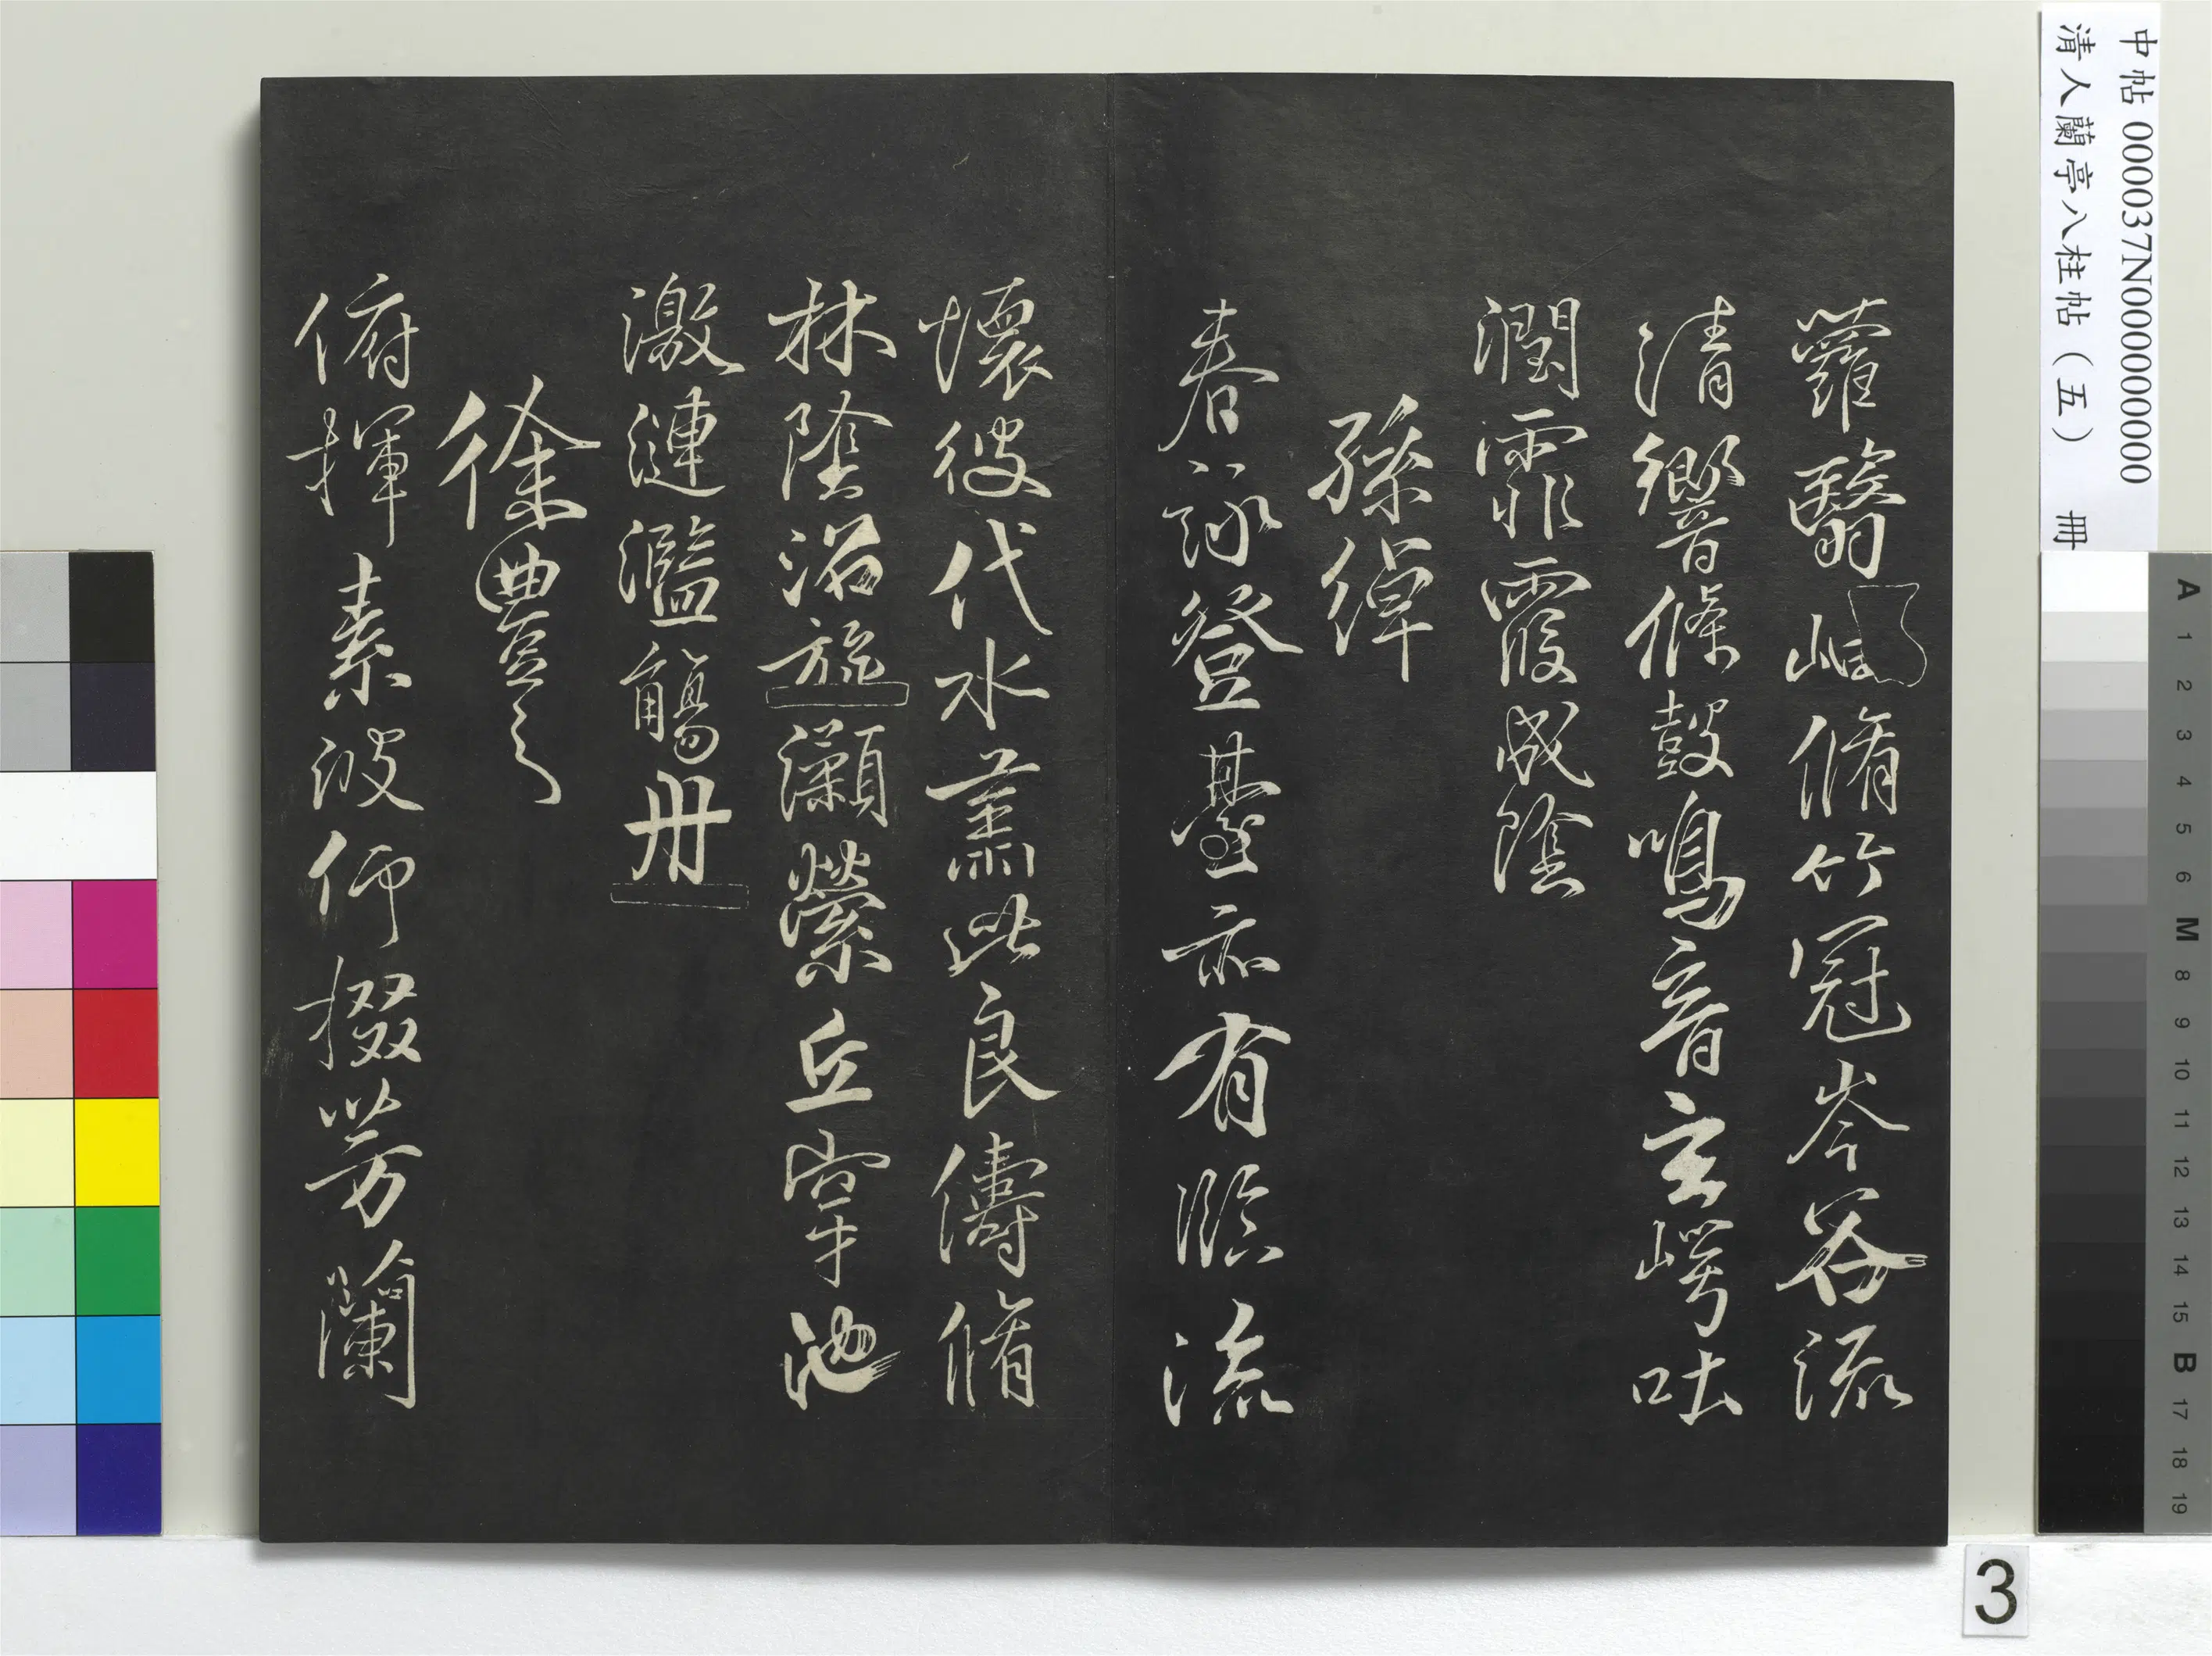 中帖 000037N000000000
清人蘭亭八柱帖（五） 冊
蘿翳岫脩竹冠岑谷流
清響條鼓鳴音玄崿吐
潤霏霞成陰
孫綽
春詠登臺亦有臨流
懷彼代水肅此良儔脩
林陰沼旋瀨縈丘穿池
激漣濫觴舟
徐豐之
俯揮素波仰掇芳蘭
A 1 2 3 4 5 6 M 8 9 10 11 12 13 14 15 B 17 18 19
3